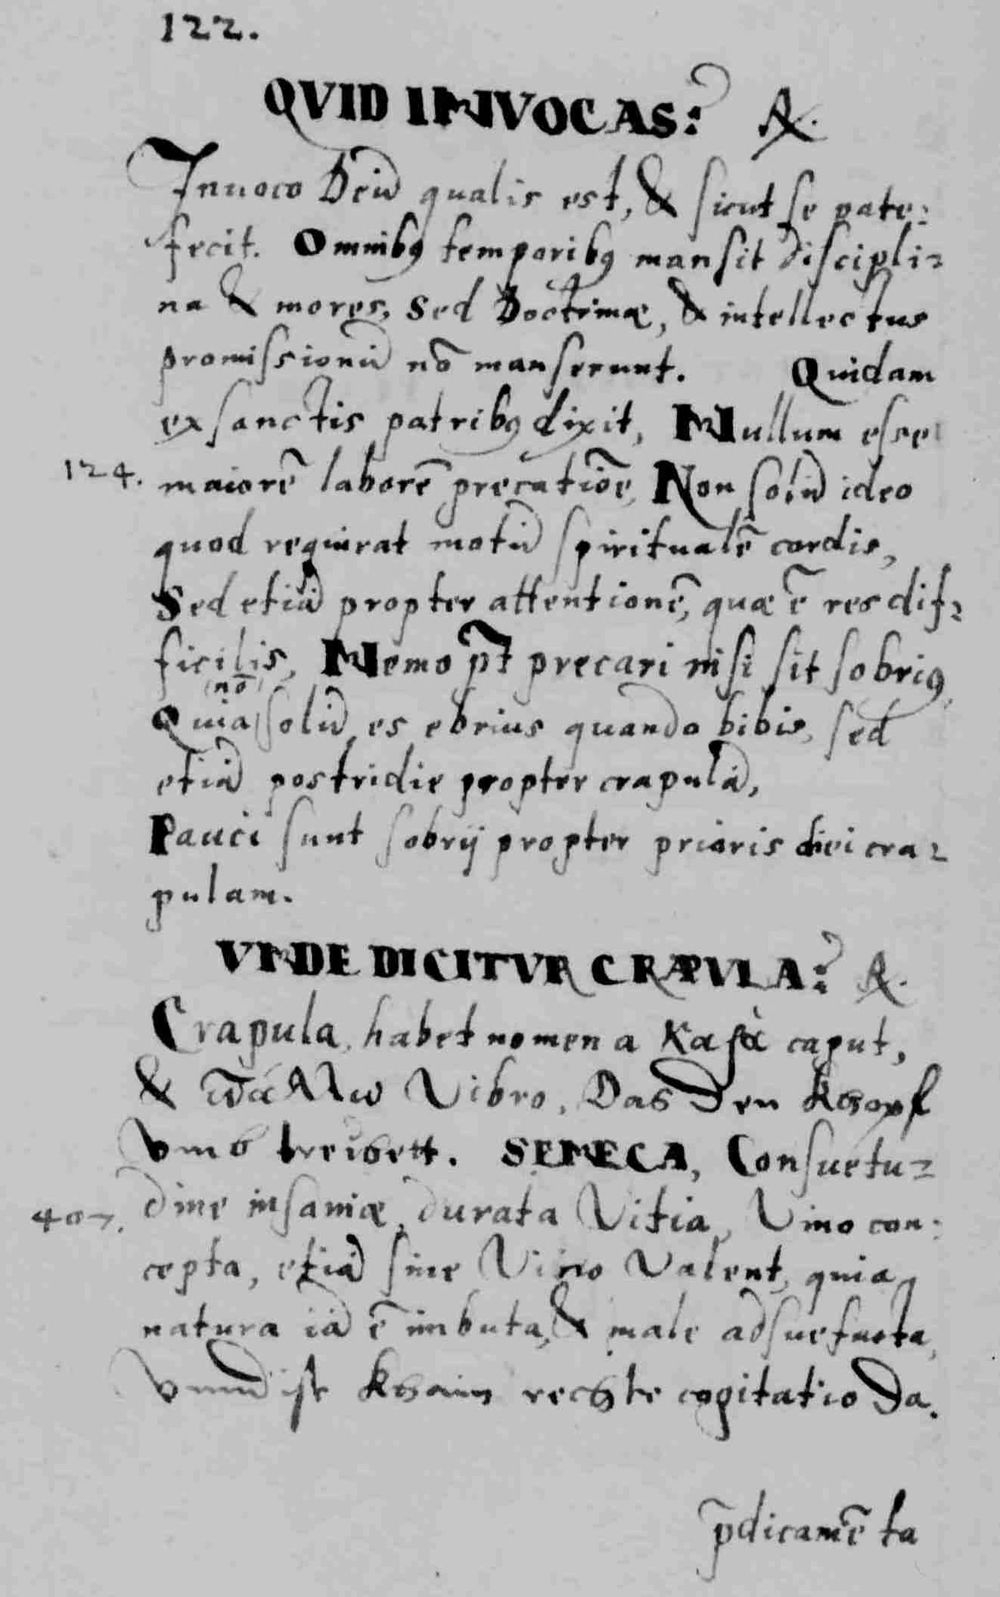 122.
QVID INVOCAS? ℟.
Inuoco Deū qualis est, & sicut se pate=
fecit. Omnibꝰ temporibꝰ mansit discipli=
na & mores, Sed Doctrinæ, & intellectus
promissionū nō manserunt. Quidam
ex sanctis patribꝰ dixit, Nullum esse
124. maiorē laborē precatiōe, Non solū ideo
quod requirat motū spiritualē cordis,
Sed etiā propter attentionē, quæ ē res dif=
ficilis, Nemo pt̄ precari nisi sit sobriꝰ,
nō
Quia solū es ebrius quando bibis, sed
etiā postridie propter crapulā,
Pauci sunt sobrij propter prioris diei cra=
pulam.
VNDE DICITVR CRAPVLA? ℟.
Crapula, habet nomen a Καρὰ caput,
& πάλλω Vibro, Das Den Khopf
vmb treibett. SENECA, Consuetu=
407. dine insaniæ durata Vitia, Vino con=
cepta, etiā sine Vino Valent, quia
natura iā ē imbuta, & male adsuefacta,
vnnd ist Khain rechte cogitatio Da.
p̄dicamē ta